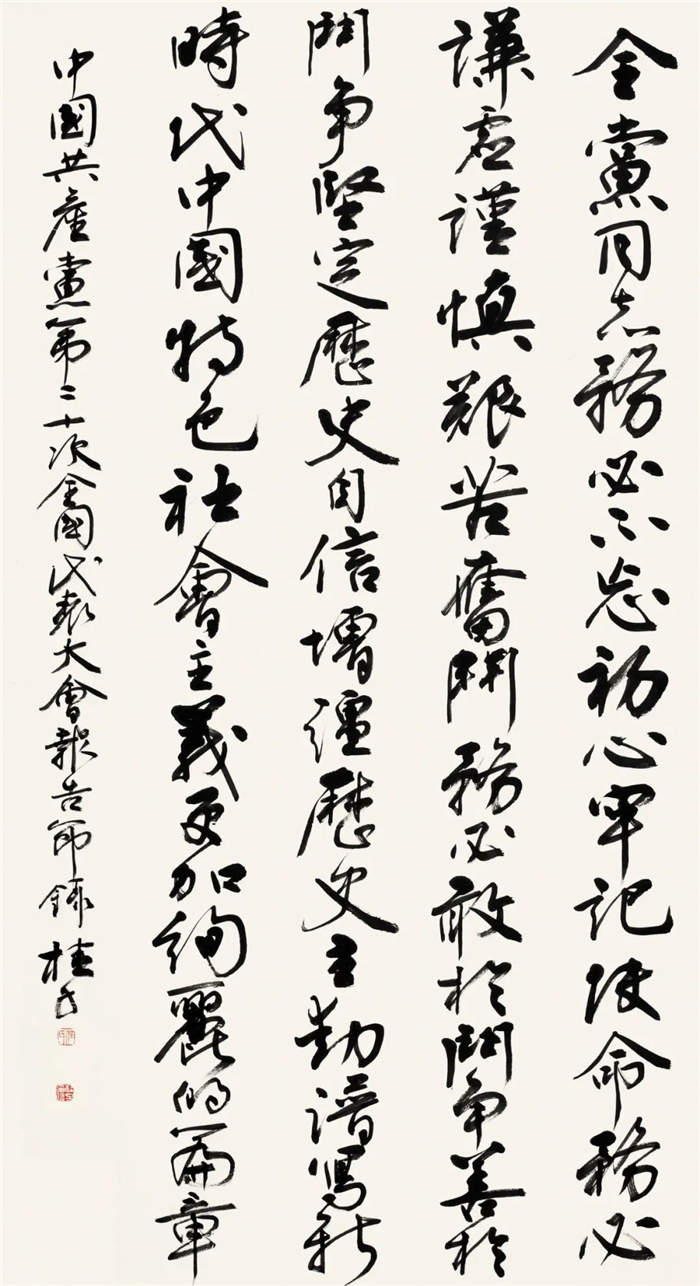 全黨同志務必不忘初心牢記使命務必
謙虛謹慎艱苦奮鬥務必敢於鬥争善於
鬥争堅定歷史自信增彊歷史主動譜寫新
時代中國特色社會主義更加絢麗的篇章
中國共産黨第二十次全國代表大會報告節錄 桂